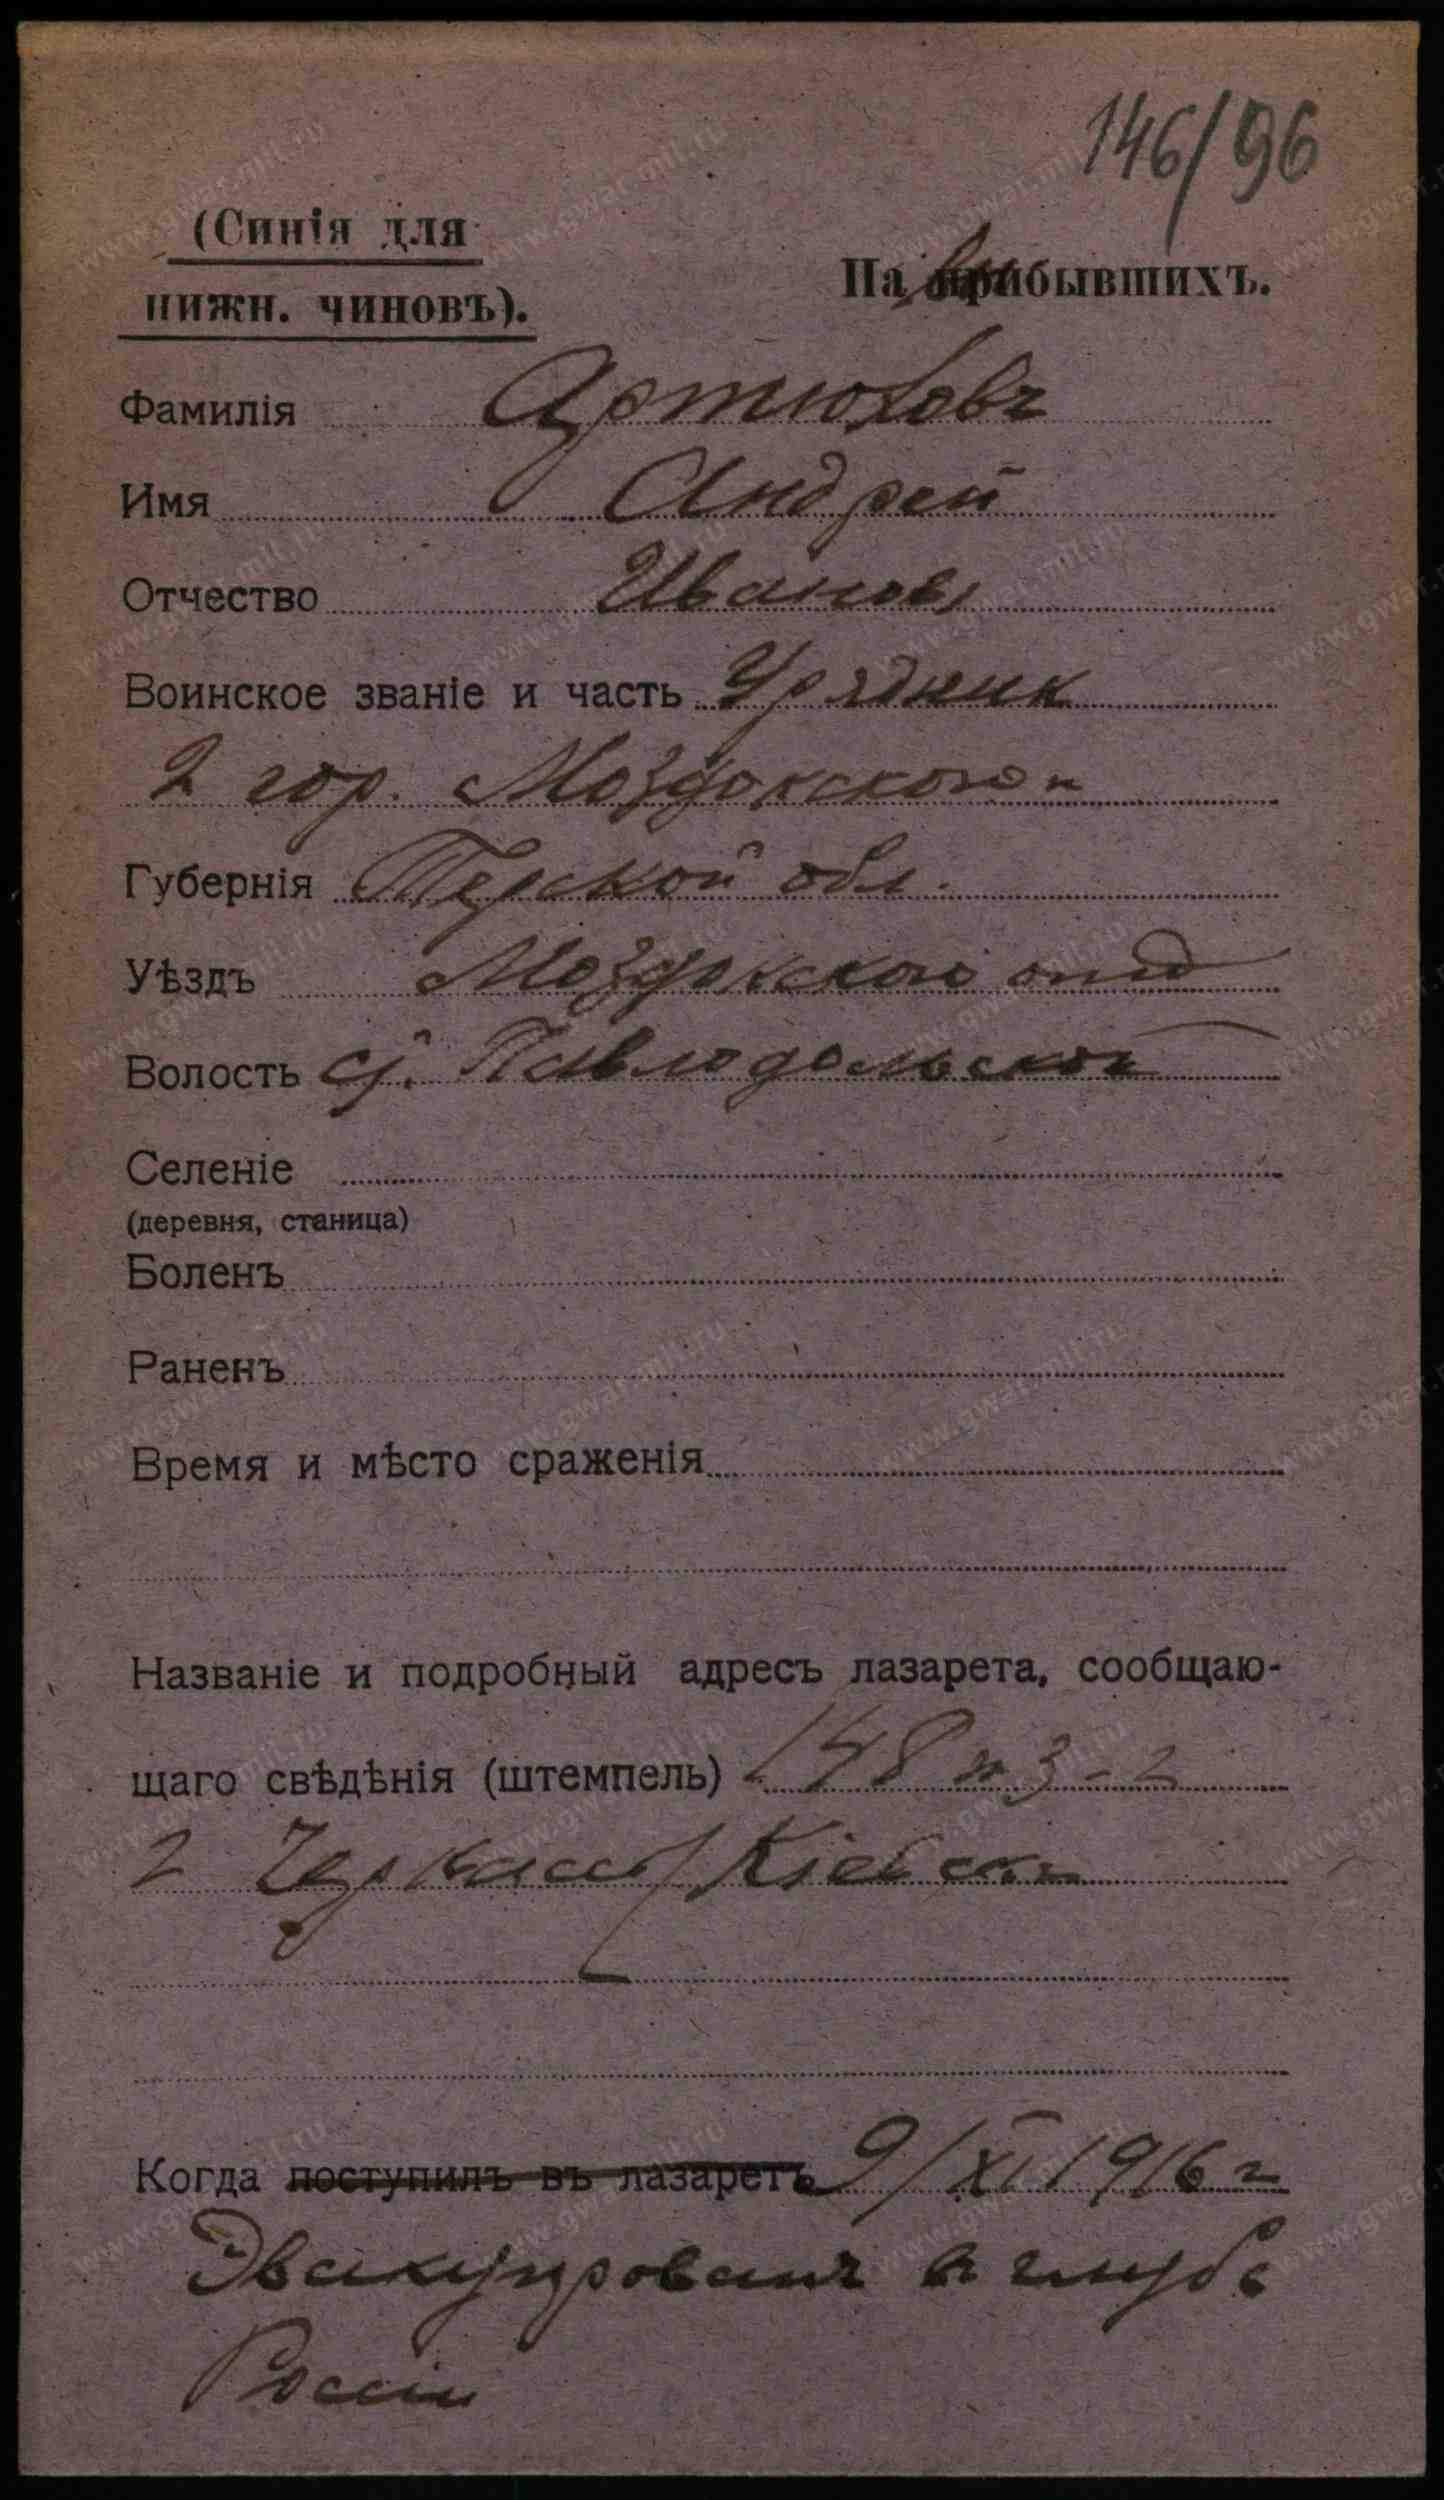 146/96
(Синія для
нижн. чиновъ).
На выбывшихъ.
Фамилія Артюховъ
Имя Андрей
Отчество Иванов
Воинское званіе и часть Урядник
2 гор. Моздокского п
Губернія Терской обл.
Уѣздъ Моздокского отд
Волость ст. Павлодольской
Селеніе
(деревня, станица)
Боленъ
Раненъ
Время и мѣсто сраженія
Названіе и подробный адресъ лазарета, сообщаю-
щаго свѣдѣнія (штемпель) 148
г Черкассы Кіевск
Когда поступилъ въ лазаретъ 9/XI 1916 г
Эвакуированъ въ глубь
Россіи
www.gwar.mil.ru